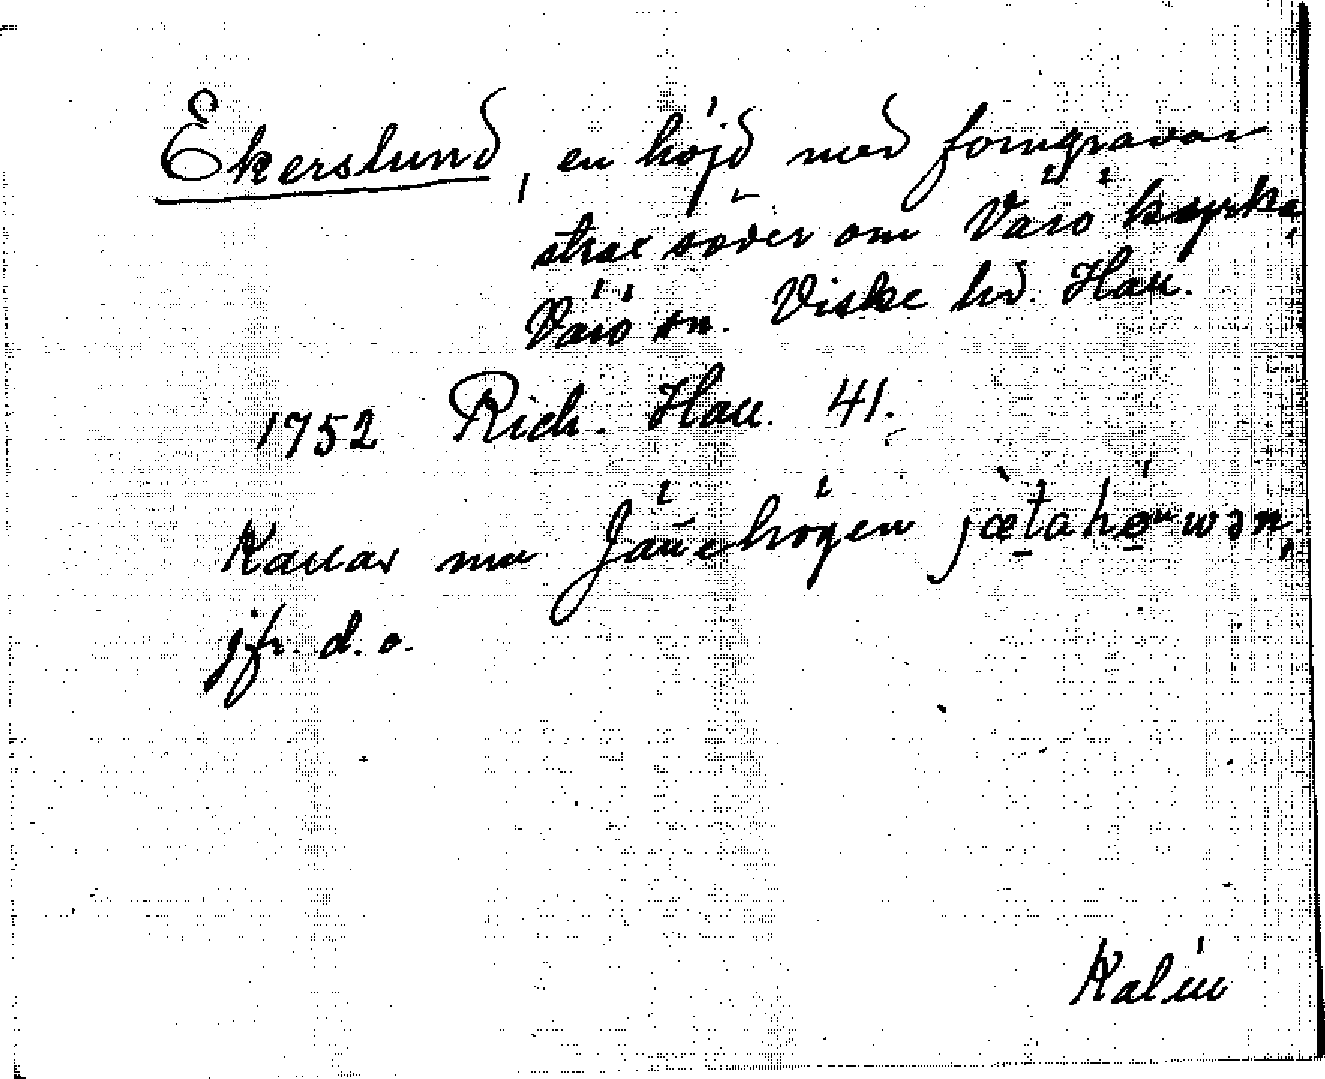 Ekerslund, en höjd med forngravar
strax söder om Värö kyrka,
Värö sn. Viske hd. Hall.
1752 Rich. Hall. 41.
Kallas nu Jättehögen
jfr. d. o.
Kalén